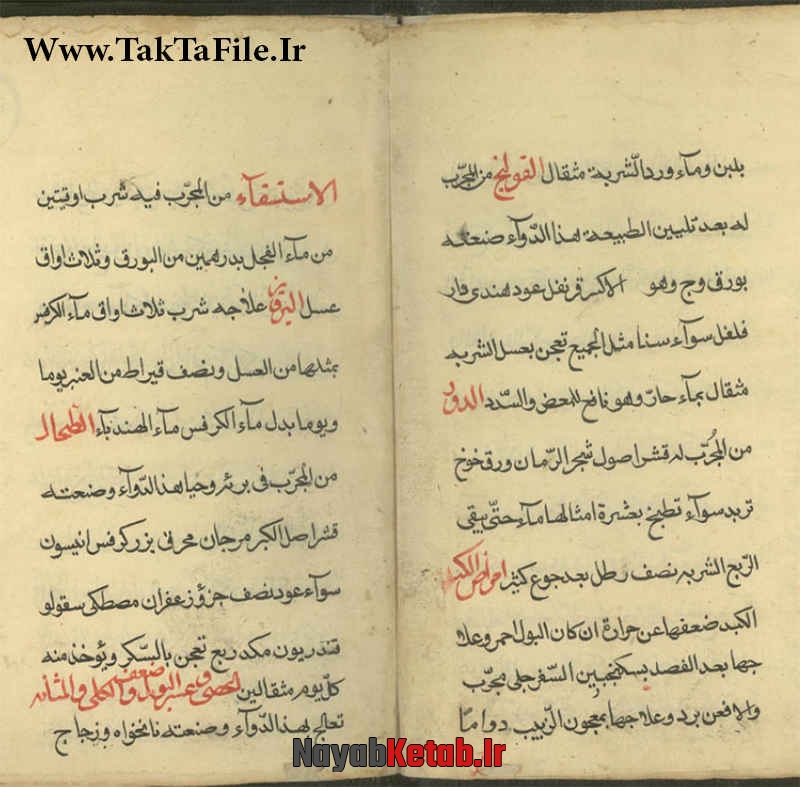 Www.TakTaFile.Ir
بلبن ومآء ورد الشربة مثقال القولنج من المجرّب
له بعد تليين الطبيعة هذا الدّوآء صنعته
بورق وج وهو الاكر قرنفل عود هندى فار
فلفل سوآء سنا مثل الجميع تعجن بعسل الشربه
مثقال بمآء حارّ وهو نافع للمغص والسّدد الدود
من المجُرّب له قشر اصول شجر الرّمان ورق خوخ
تربد سوآء تطبخ بعشرة امثالها مآء حتّى يبقى
الرّبع الشربه نصف رطل بعد جوع كثير امراض الكبد
الكبد ضعفها عن حرارة ان كان البول احمر وعلا
جها بعد الفصد بسكنجبين السّفرجلى مجرّب
والا فعن برد وعلاجها بمعجون الزّبيب دوامًا
الاستسقآء من المجرّب فيه شرب اوقيتين
من مآء الفجل بدرهمين من البورق وثلاث اواق
عسل اليرقان علاجه شرب ثلاث اواق مآء الكرفس
بمثلها من العسل ونصف قيراط من العنبر يوما
ويوما بدل مآء الكرفس مآء الهندبآء الطحال
من المجرّب فى برئه وحيا هذا الدّوآء وصنعته
قشر اصل الكبر مرجان محرق بزر كرفس انيسون
سوآء عود نصف جزؤ زعفران مصطكى سقولو
قندريون مكد ربع تعجن بالسّكر ويؤخذ منه
كلّ يوم مثقالين الحصى وعسر البول وضعف الكلى والمثانه
تعالج بهذا الدّوآء وصنعته نانخواه وزجاج
NayabKetab.Ir